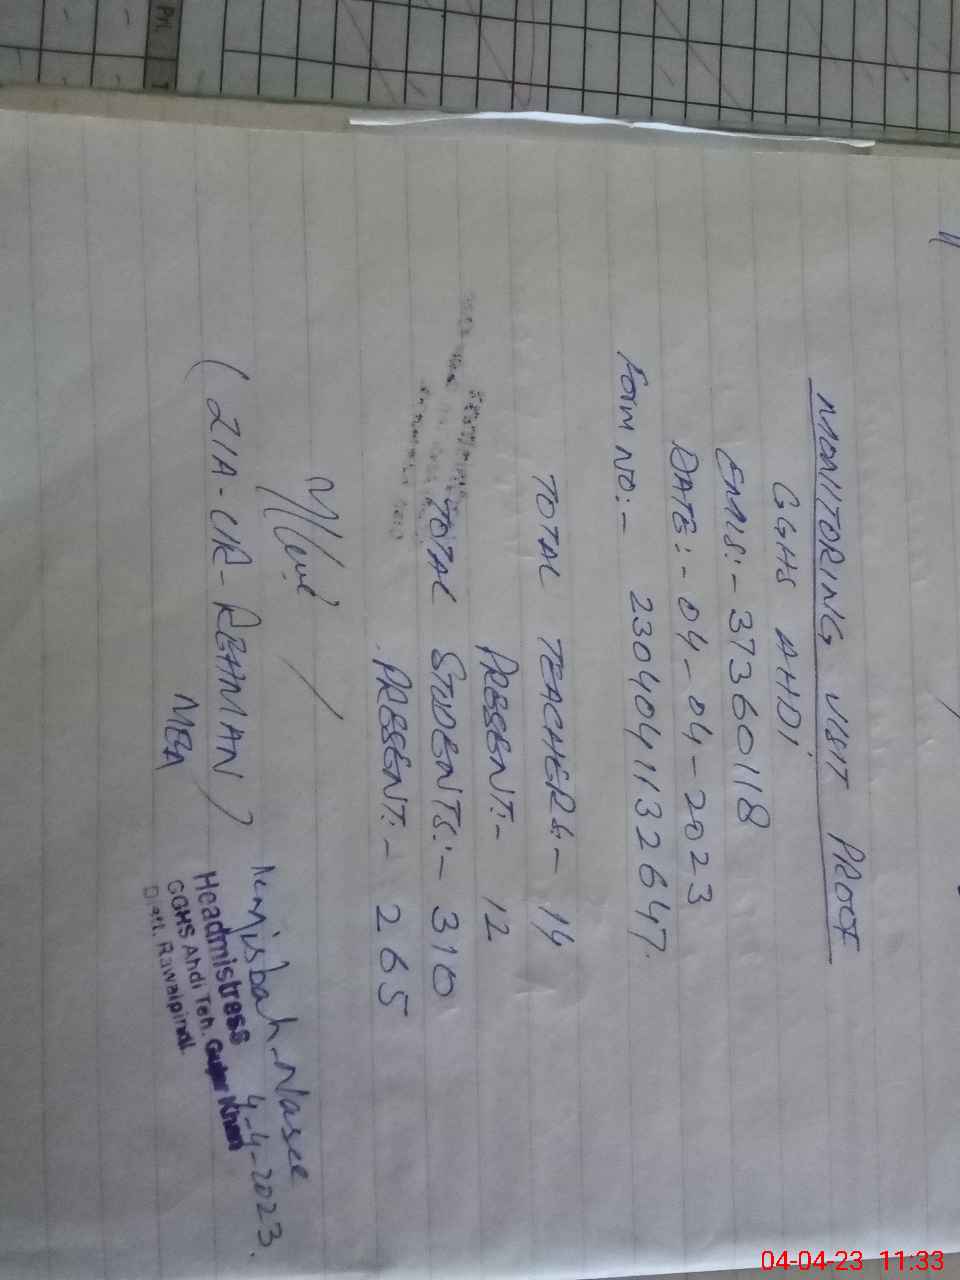 MONITORING VISIT PROOF
GGHS AHDI
EMIS:- 37360118
DATE:- 04-04-2023
FORM NO:- 2304041132647.
TOTAL TEACHERS:- 14
PRESENT:- 12
TOTAL STUDENTS:- 310
PRESENT:- 265
(ZIA-UR-REHMAN)
MEA
Misbah
4-4-2023.
Headmistress
GGHS Ahdi Teh. Gujar Khan
Distt. Rawalpindi.
04-04-23 11:33